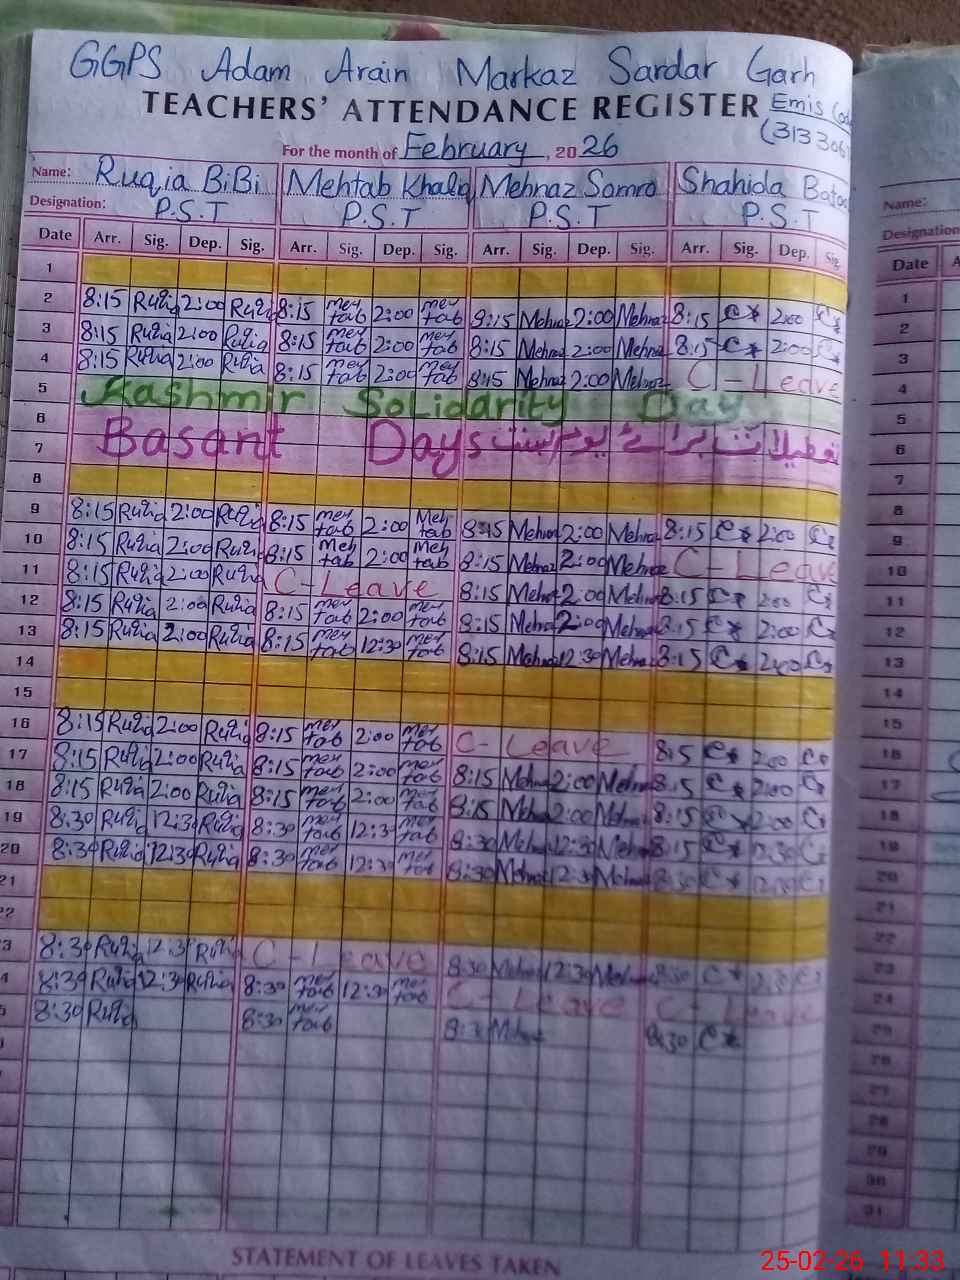 GGPS Adam Arain Markaz Sardar Garh
TEACHERS' ATTENDANCE REGISTER Emis
For the month of February, 2026
Name: Ruqia BiBi Mehtab Khaliq Mehnaz Somro Shahida
Designation: P.S.T P.S.T P.S.T P.S.T
Date Arr. Sig. Dep. Sig. Arr. Sig. Dep. Sig. Arr. Sig. Dep. Sig. Arr. Sig. Dep. Sig.
1
2 8:15 Ruqia 2:00 Ruqia 8:15 Mehtab 2:00 Mehtab 8:15 Mehnaz 2:00 Mehnaz 8:15 2:00
3 8:15 Ruqia 2:00 Ruqia 8:15 Mehtab 2:00 Mehtab 8:15 Mehnaz 2:00 Mehnaz 8:15 2:00
4 8:15 Ruqia 2:00 Ruqia 8:15 Mehtab 2:00 Mehtab 8:15 Mehnaz 2:00 Mehnaz C-Leave
5 Kashmir Solidarity Day
6
7 Basant Days تعطیلات برائے یوم بسنت
8
9 8:15 Ruqia 2:00 Ruqia 8:15 Mehtab 2:00 Mehtab 8:15 Mehnaz 2:00 Mehnaz 8:15 2:00
10 8:15 Ruqia 2:00 Ruqia 8:15 Mehtab 2:00 Mehtab 8:15 Mehnaz 2:00 Mehnaz C-Leave
11 8:15 Ruqia 2:00 Ruqia C-Leave 8:15 Mehnaz 2:00 Mehnaz 8:15 2:00
12 8:15 Ruqia 2:00 Ruqia 8:15 Mehtab 2:00 Mehtab 8:15 Mehnaz 2:00 Mehnaz 8:15 2:00
13 8:15 Ruqia 2:00 Ruqia 8:15 Mehtab 12:30 Mehtab 8:15 Mehnaz 12:30 Mehnaz 8:15
14
15
16 8:15 Ruqia 2:00 Ruqia 8:15 Mehtab 2:00 Mehtab C-Leave 8:15 2:00
17 8:15 Ruqia 2:00 Ruqia 8:15 Mehtab 2:00 Mehtab 8:15 Mehnaz 2:00 Mehnaz 8:15 2:00
18 8:15 Ruqia 2:00 Ruqia 8:15 Mehtab 2:00 Mehtab 8:15 Mehnaz 2:00 Mehnaz 8:15 2:00
19 8:30 Ruqia 12:30 Ruqia 8:30 Mehtab 12:30 Mehtab 8:30 Mehnaz 12:30 Mehnaz 8:15 12:30
20 8:30 Ruqia 12:30 Ruqia 8:30 Mehtab 12:30 Mehtab 8:30 Mehnaz 12:30 Mehnaz 8:30 12:30
21
22
3 8:30 Ruqia 12:30 Ruqia C-Leave 8:30 Mehnaz 12:30 Mehnaz 8:30 12:30
4 8:30 Ruqia 12:30 Ruqia 8:30 Mehtab 12:30 Mehtab C-Leave C-Leave
5 8:30 Ruqia 8:30 Mehtab 8:30 Mehnaz 8:30
STATEMENT OF LEAVES TAKEN
Name:
Designation
Date A
1
2
3
4
5
6
7
8
9
10
11
12
13
14
15
16
17
18
19
20
21
22
23
24
25
26
27
28
29
30
31
25-02-26 11:33